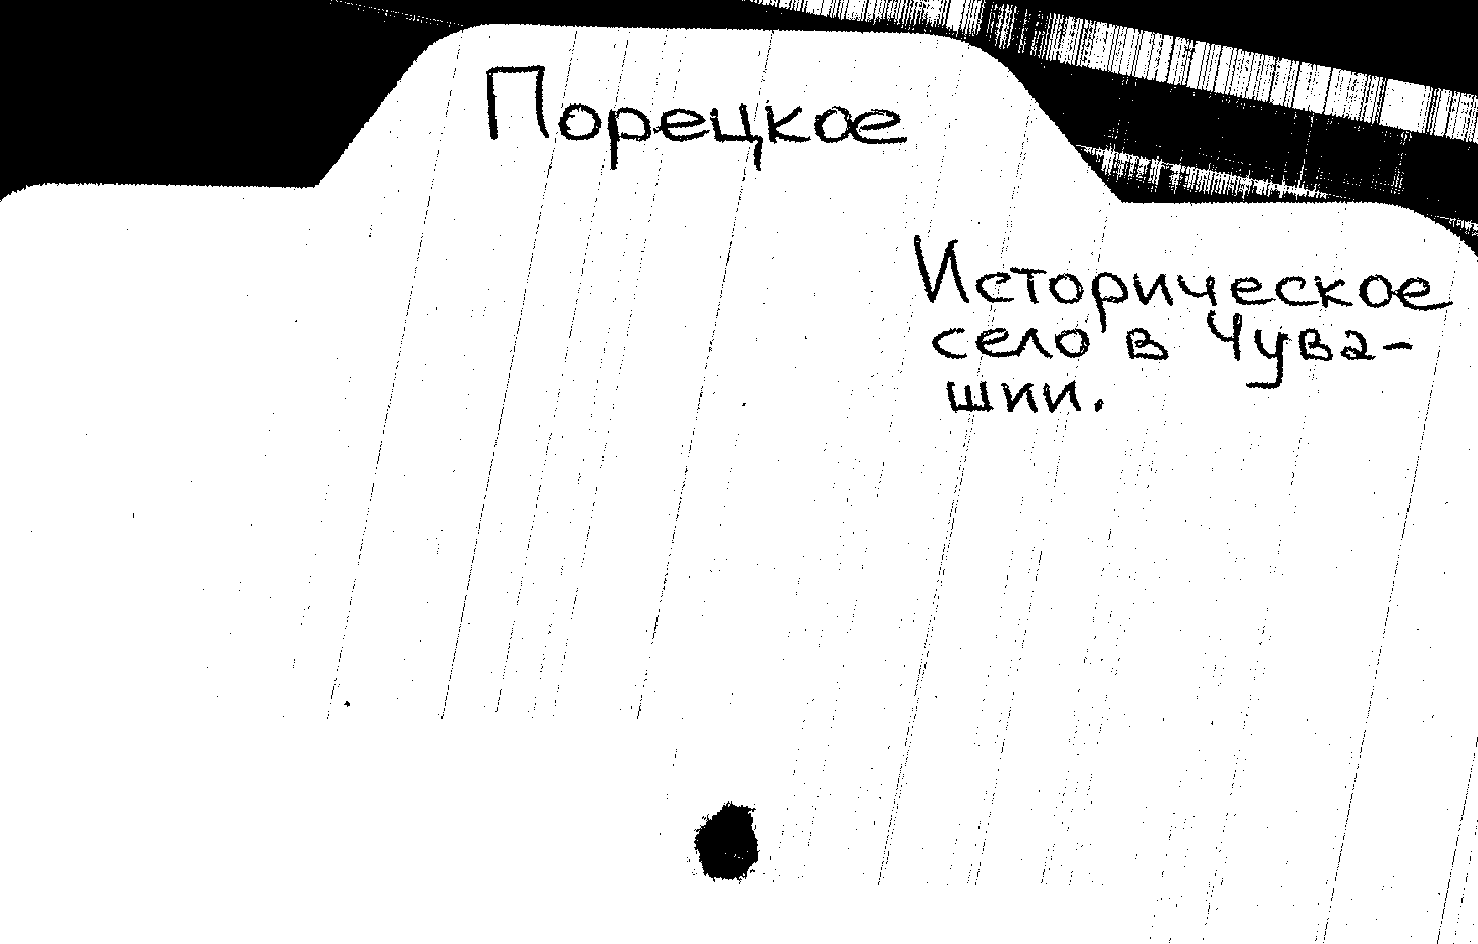 Порецкое
Историческое
село в Чува-
шии.